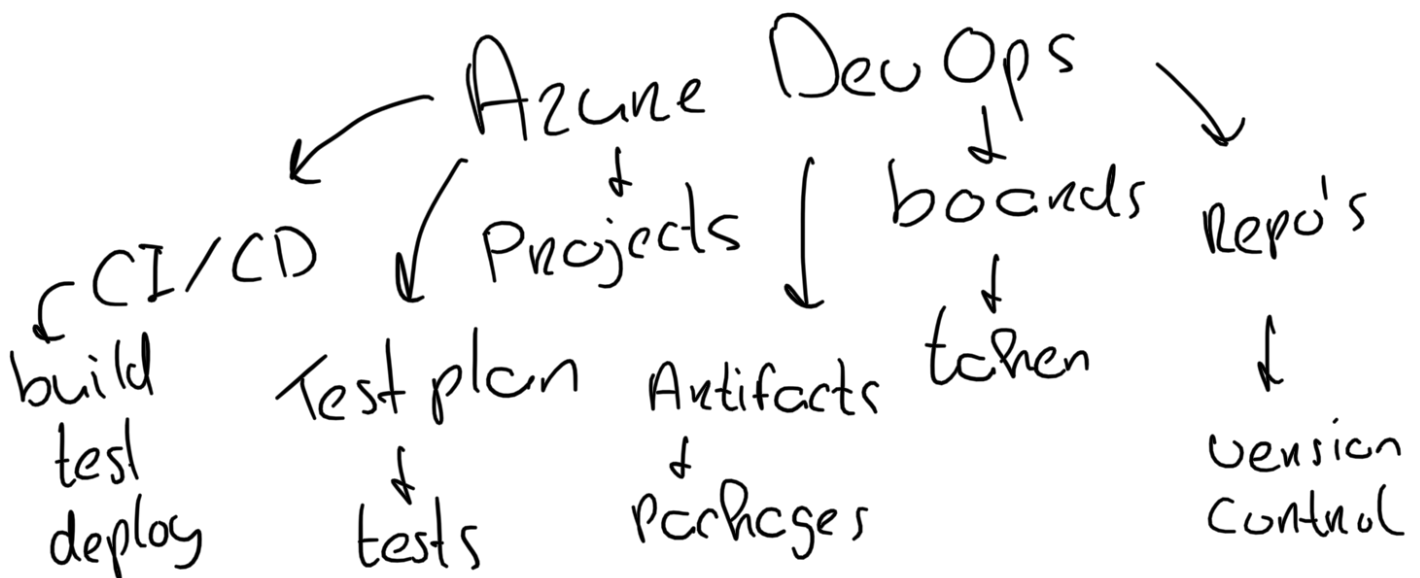 Azure DevOps
CI/CD
build
test
deploy
Test plan
tests
Projects
Artifacts
packages
boards
taken
Repo's
version
control